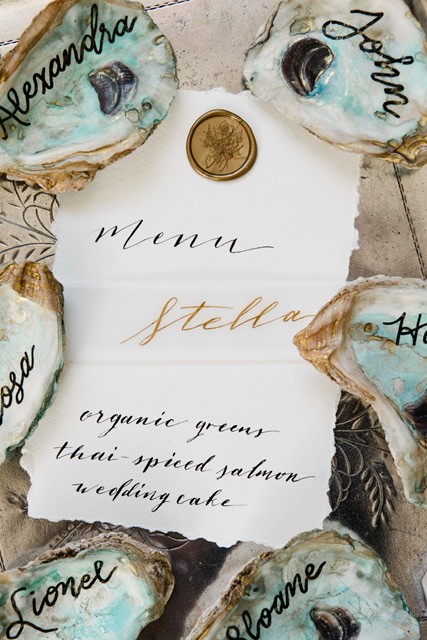 Alexandra
John
menu
Stella
organic greens
thai-spiced salmon
wedding cake
Lionel
Sloane